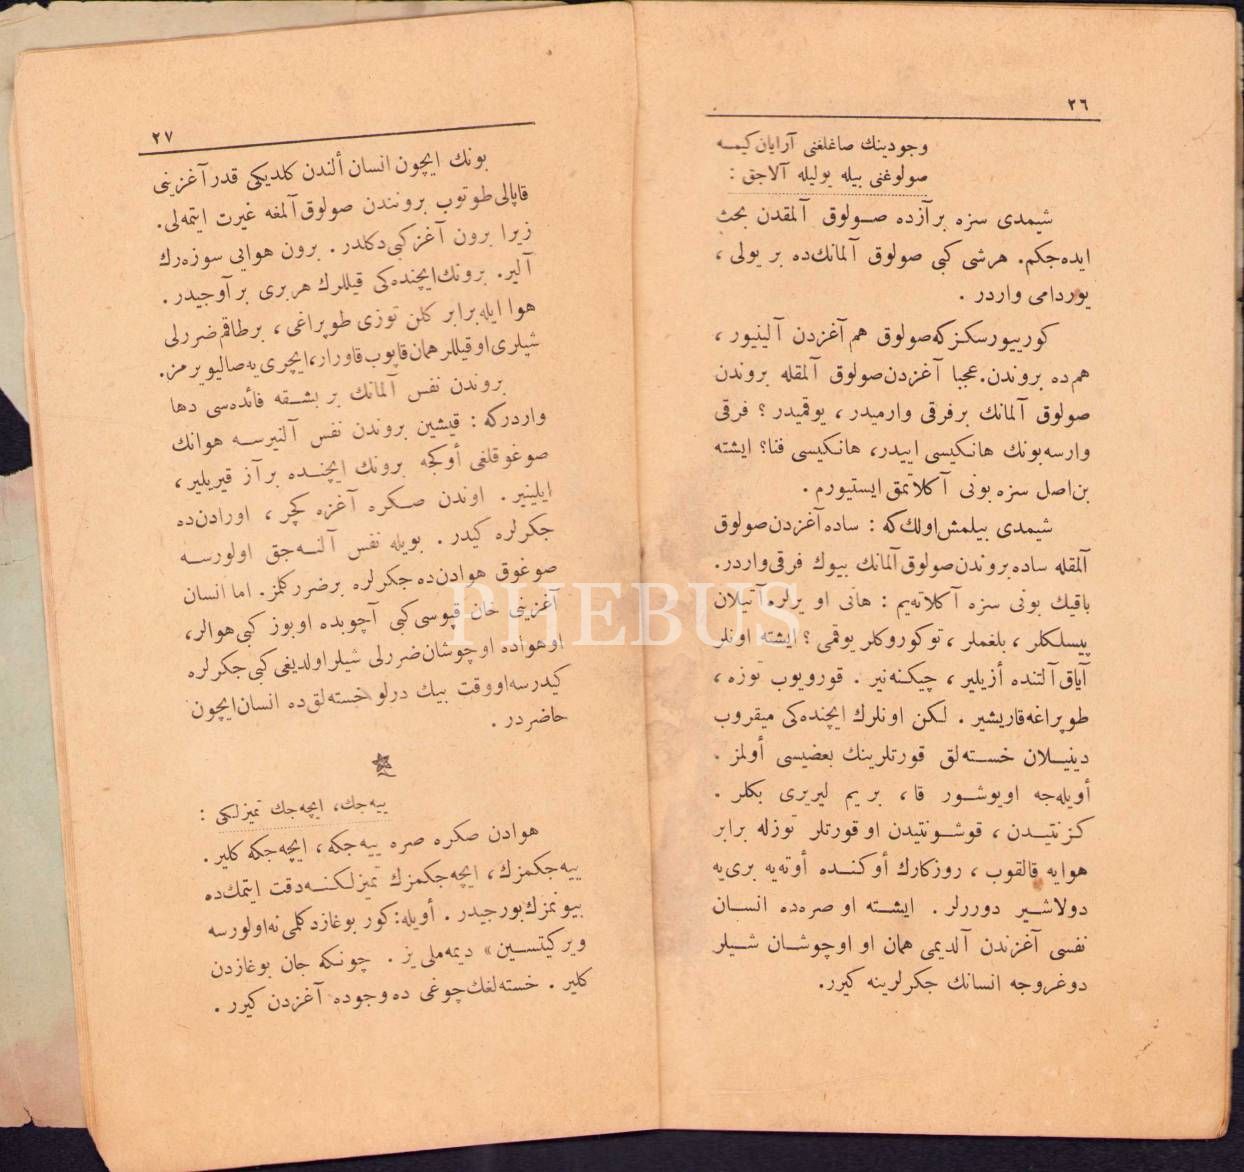 ٢٦
وجودينك صاغلغنى آرايان كيمسه
صولوغنى بيله يوليله آلاجق :
شيمدى سزه برآزده صولوق آلمقدن بحث
ايده‌جكم. هرشى كبى صولوق آلمانك‌ده بر يولى ،
يوردامى واردر .
كورييورسكزكه صولوق هم آغزدن آلينيور ،
هم‌ده بروندن. عجبا آغزدن صولوق آلمقله بروندن
صولوق آلمانك برفرقى وارميدر ، يوقميدر ؟ فرقى
وارسه بونك هانكيسى اييدر، هانكيسى فنا؟ ايشته
بن اصل سزه بونى آكلاتمق ايستيورم .
شيمدى بيلمش اولك كه : ساده آغزدن صولوق
آلمقله ساده بروندن صولوق آلمانك بيوك فرقى واردر.
باقيك بونى سزه آكلاته‌يم : هانى او يرلره آتيلان
پيسلكلر ، بلغملر ، توكوروكلر يوقمى ؟ ايشته اونلر
آياق آلتنده أزيلير ، چيكنه‌نير . قورويوب توزه ،
طوپراغه قاريشير . لكن اونلرك ايچنده‌كى ميقروب
دينيلان خسته‌لق قورتلرينك بعضيسى أولمز .
أويله‌جه اويوشور قا، بريم ليريرى بكلر .
كزنتيدن ، قوشونتيدن او قورتلر توزله برابر
هوايه قالقوب ، روزكارك أوكنده أوته‌يه برى‌يه
دولاشير دوررلر . ايشته او صره‌ده انسان
نفسى آغزندن آلديمى همان او اوچوشان شيلر
دوغروجه انسانك جكرلرينه كيرر.
٢٧
بونك ايچون انسان ألندن كلديكى قدر آغزينى
قاپالى طوتوب بروندن صولوق آلمغه غيرت ايتمه‌لى.
زيرا برون آغز كبى دكلدر . برون هوايى سوزه‌رك
آلير. برونك ايچنده‌كى قيللرك هر برى بر آوجيدر .
هوا ايله برابر كلن توزى طوپراغى ، برطاقم ضررلى
شيلرى او قيللر همان قاپوب قاورار، ايچرى‌يه صاليويرمز.
بروندن نفس آلمانك بر بشقه فائده‌سى دها
واردركه : قيشين بروندن نفس آلنيرسه هوانك
صوغوقلغى أوكجه برونك ايچنده برآز قيريلير ،
ايلينير . اوندن صكره آغزه كچر ، اورادن‌ده
جكرلره كيدر . بويله نفس آلنه‌جق اولورسه
صوغوق هوادن‌ده جكرلره برضرر كلمز. اما انسان
آغزينى خان قپوسى كبى آچوبده او بوز كبى هوالر،
او هواده اوچوشان ضررلى شيلر اولديغى كبى جكرلره
كيدرسه او وقت بيك درلو خسته‌لق‌ده انسان ايچون
حاضردر .
ييه‌جك، ايچه‌جك تميزلكى :
هوادن صكره صره ييه‌جكه ، ايچه‌جكه كلير .
ييه‌جكمزك ، ايچه‌جكمزك تميزلكنه دقت ايتمك‌ده
بيونمزك بورجيدر . أويله: كور بوغازدكلمى نه‌اولورسه
ويركيتسين» ديمه‌ملى‌يز . چونكه جان بوغازدن
كلير . خسته‌لغك چوغى ده وجوده آغزدن كيرر .
PHEBUS